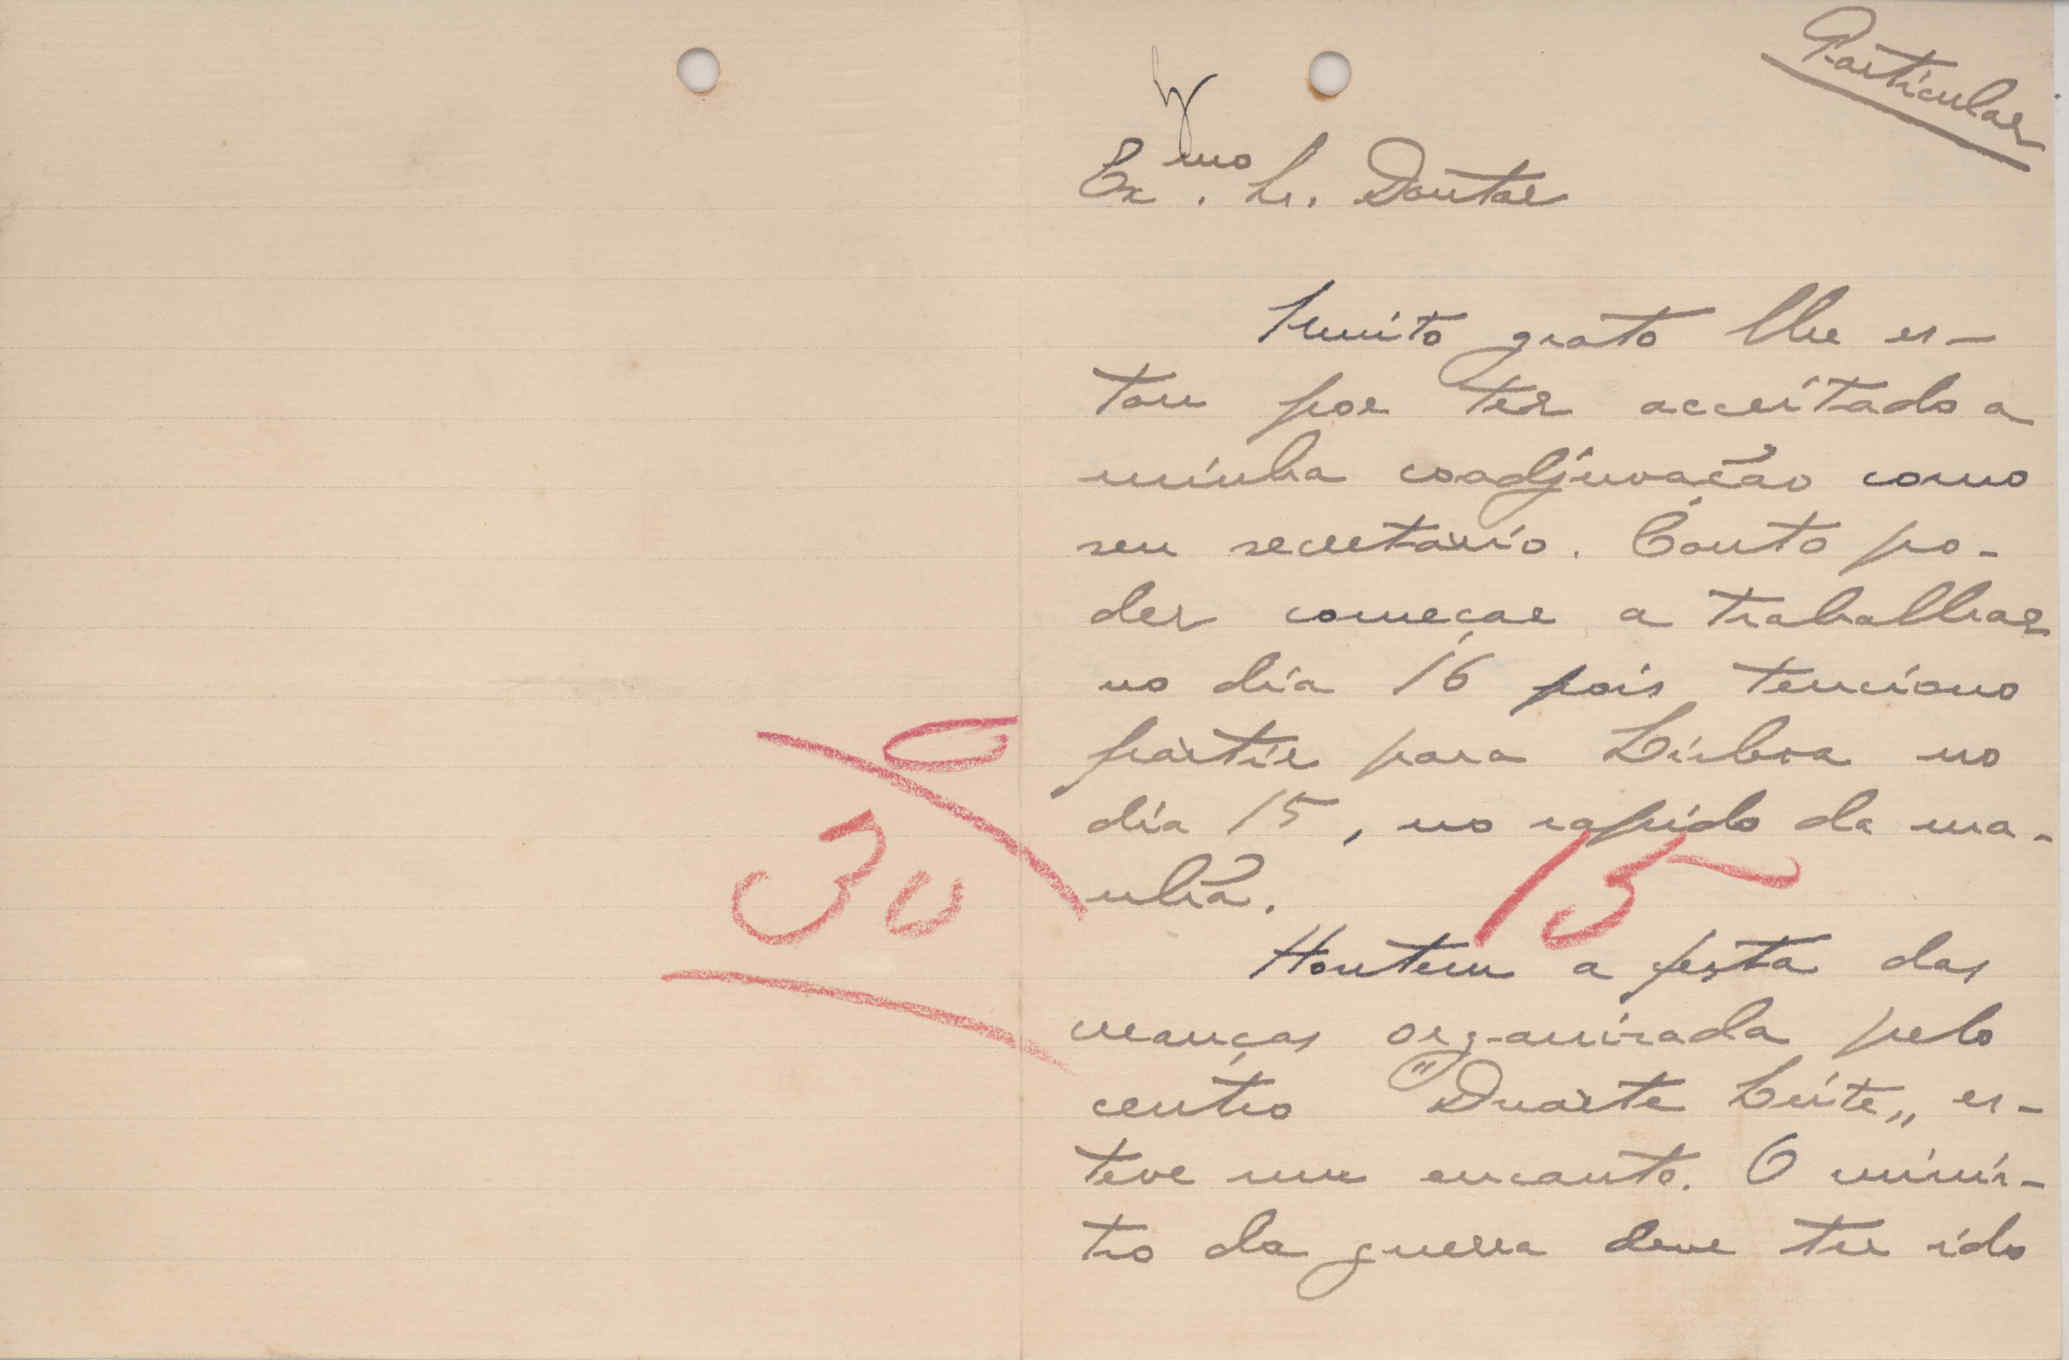 Particular
Ex.mo Sr. Doutor
Muito grato lhe es-
tou por ter acceitado a
minha coadjuvação como
seu secretario. Conto po-
der começar a trabalhar
no dia 16 pois tenciono
partir para Lisboa no
dia 15, no rapido da ma-
nhã.
15
30
Hontem a festa das
creanças organisada pelo
centro "Duarte Leite" es-
teve um encanto. O minis-
tro da guerra deve ter ido